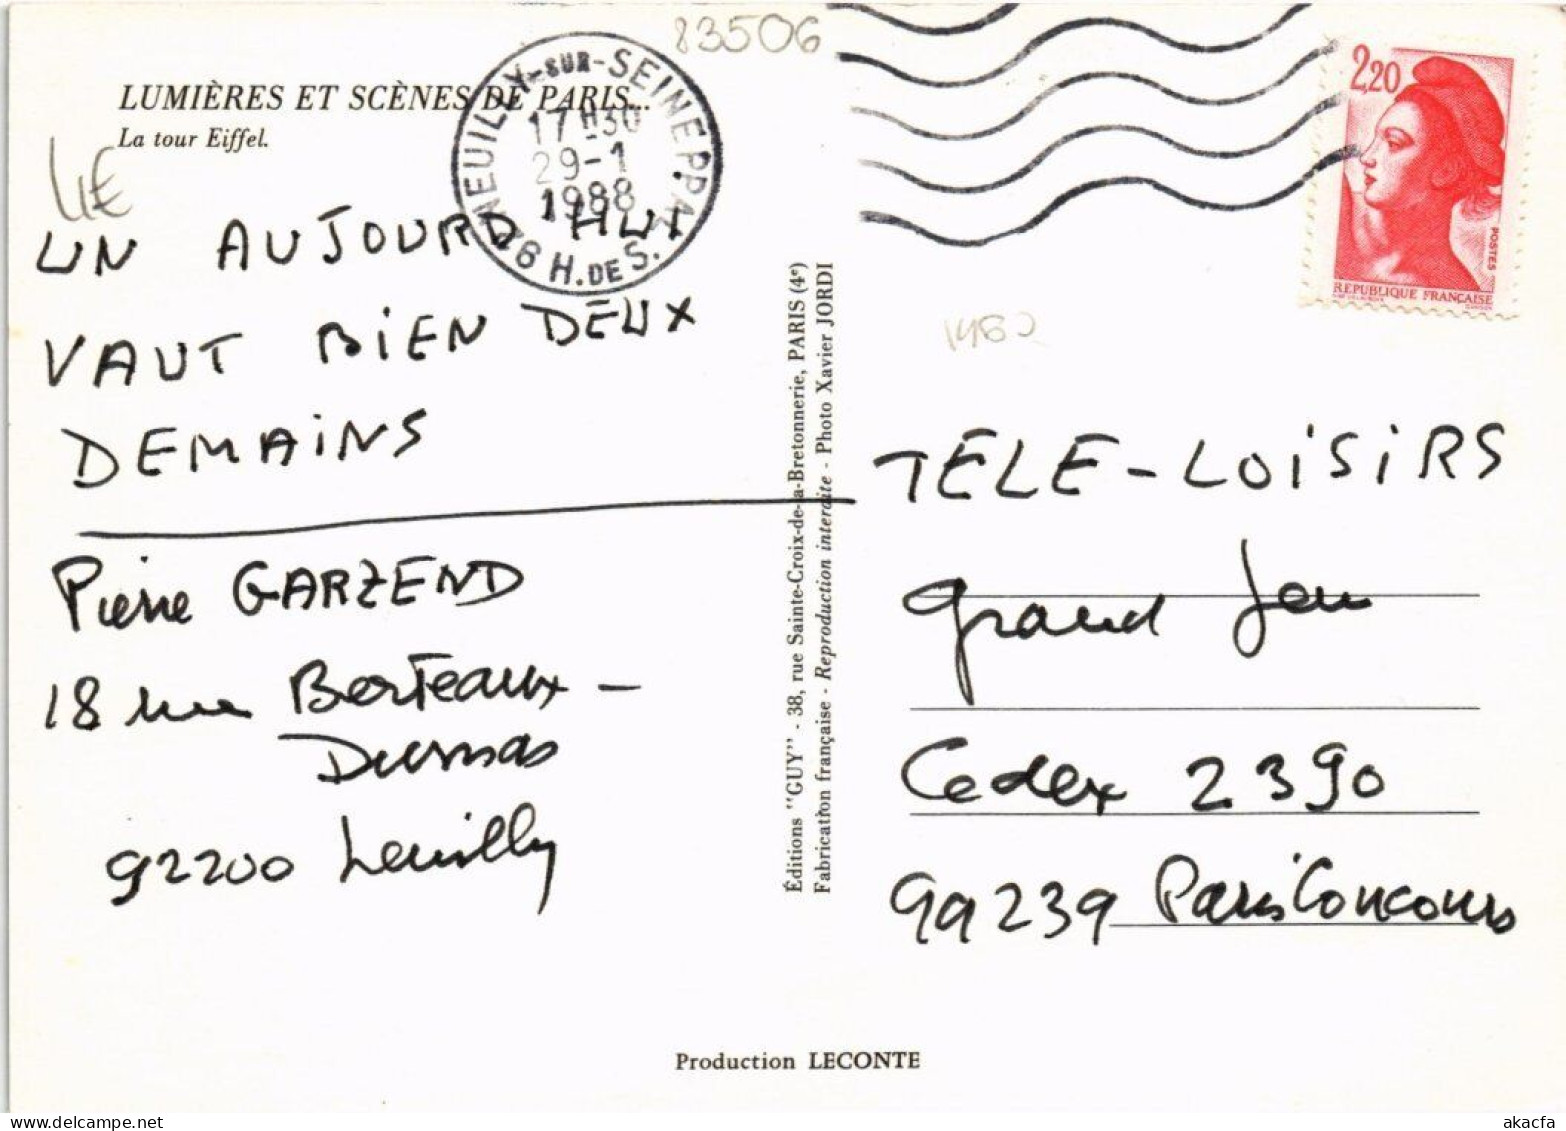 83506
LUMIÈRES ET SCÈNES DE PARIS...
La tour Eiffel.
NEUILLY-SUR-SEINE PPAL
17 H 30
29-1
1988
92 H. DE S.
2,20
POSTES
REPUBLIQUE FRANÇAISE
UN AUJOURD HUI
VAUT BIEN DEUX
DEMAINS
Pierre GARZEND
18 rue Berteaux-
Dumas
92200 Neuilly
Éditions "GUY" - 38, rue Sainte-Croix-de-la-Bretonnerie, PARIS (4e)
Fabrication française - Reproduction interdite - Photo Xavier JORDI
TELE-LOISIRS
grand Jeu
Cedex 2390
99239 Paris Concours
Production LECONTE
akacfa